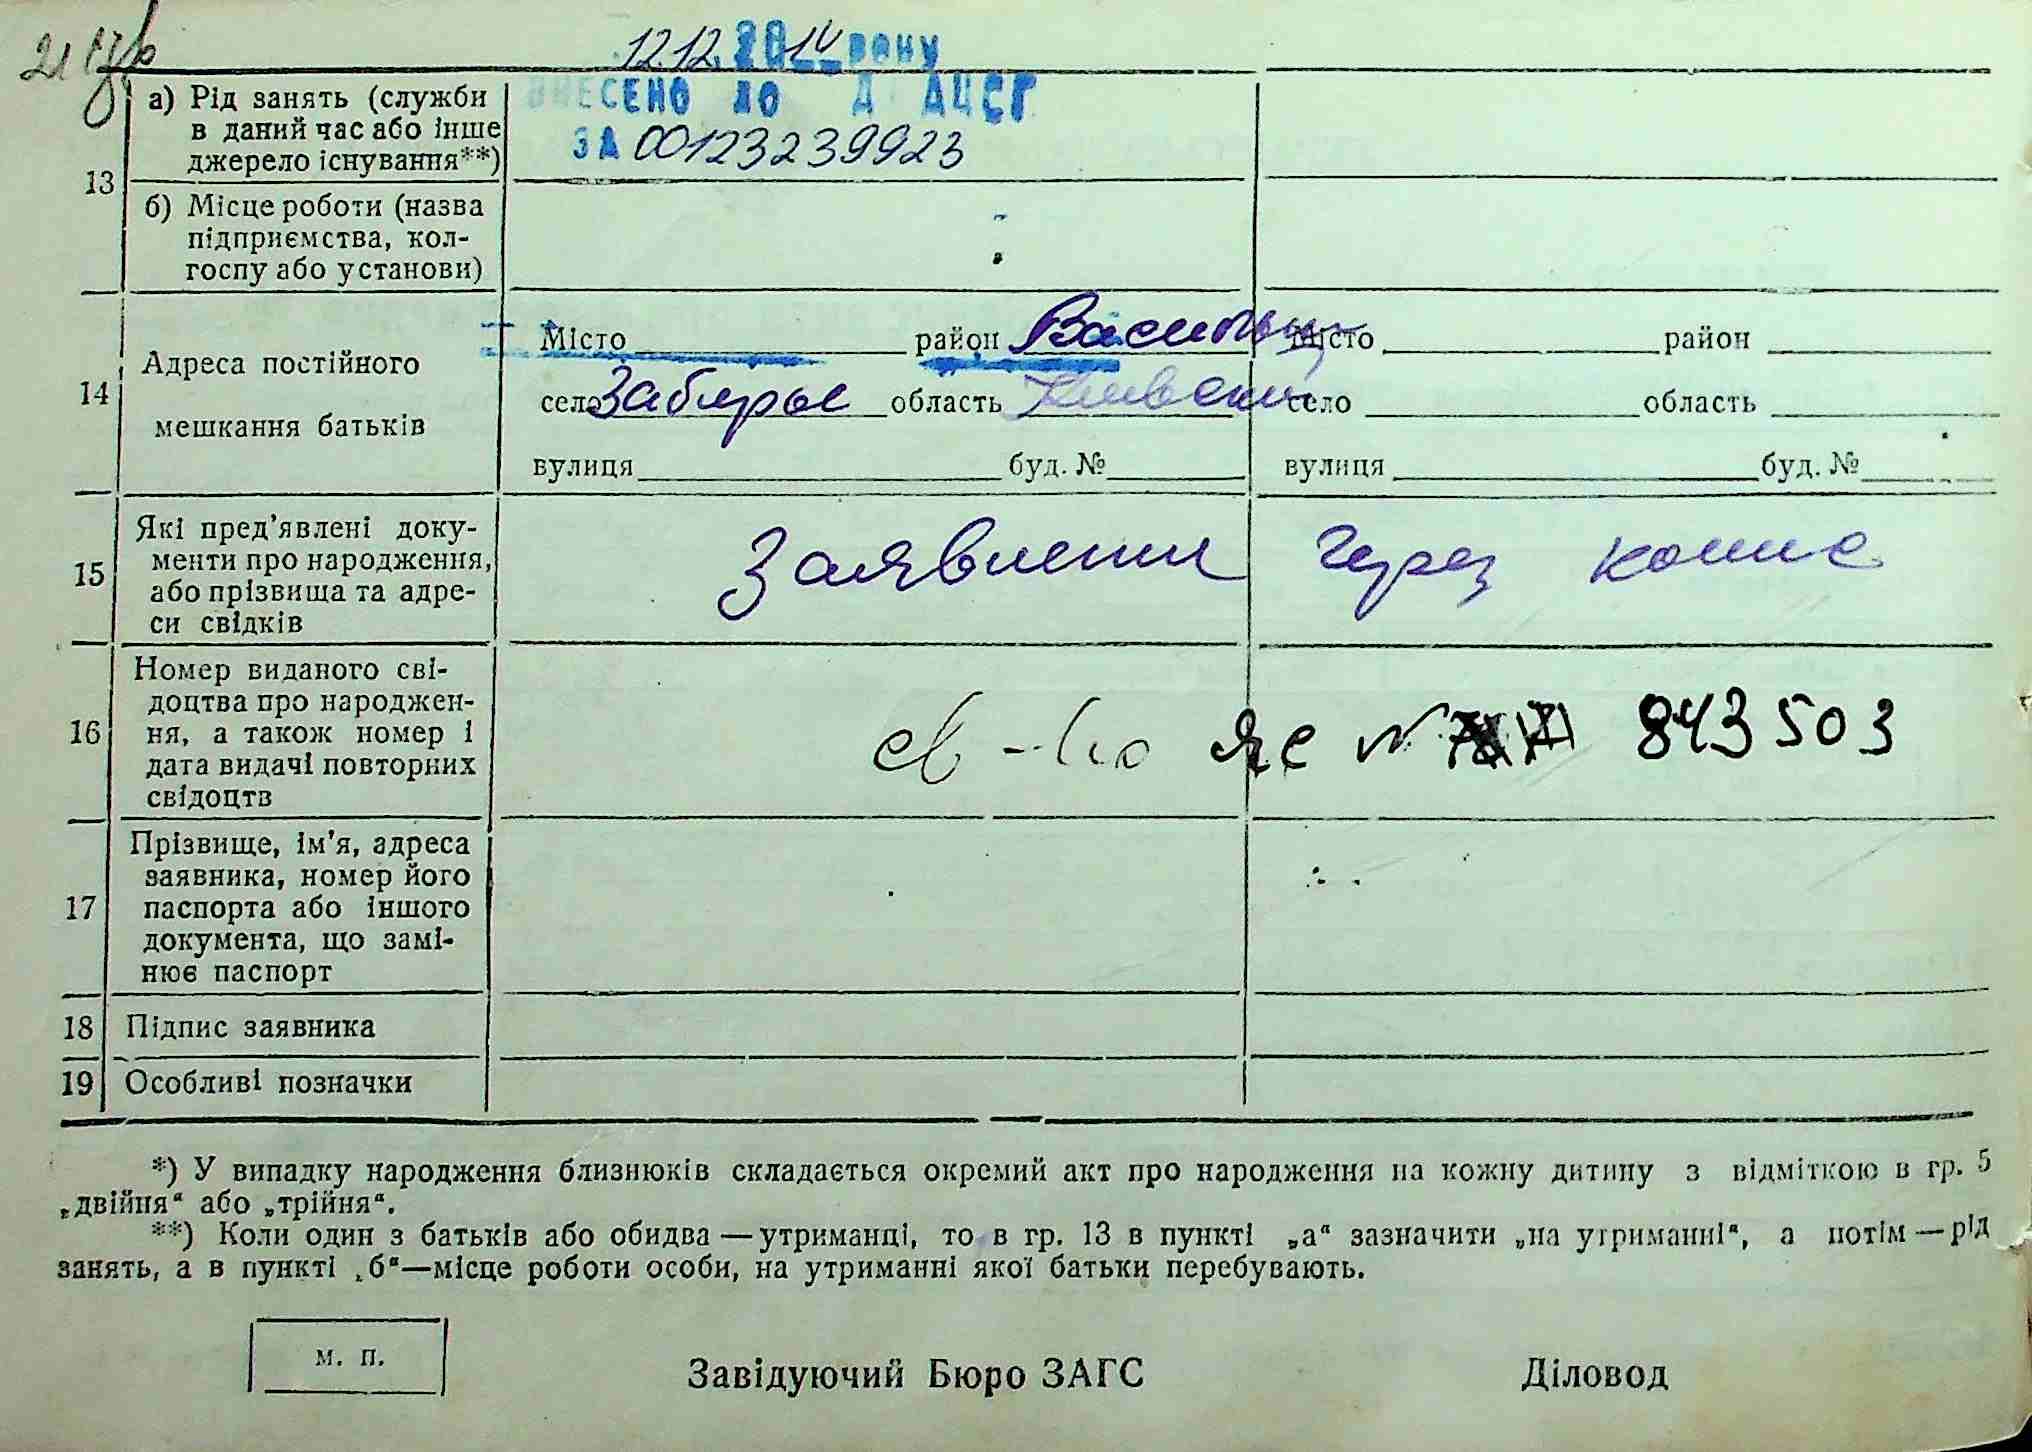 12.12.2014 року
ВНЕСЕНО ДО Д АЦСГ
ЗА 00123239923
13
а) Рід занять (служби
в даний час або інше
джерело існування**)
б) Місце роботи (назва
підприємства, кол-
госпу або установи)
14
Адреса постійного
мешкання батьків
Місто район Васильк Місто район
село Забирье область Киевск село область
вулиця буд. № вулиця буд. №
15
Які пред'явлені доку-
менти про народження,
або прізвища та адре-
си свідків
Заявлении через комис
16
Номер виданого сві-
доцтва про народжен-
ня, а також номер і
дата видачі повторних
свідоцтв
св-во ЯС № 843503
17
Прізвище, ім'я, адреса
заявника, номер його
паспорта або іншого
документа, що замі-
нює паспорт
18 Підпис заявника
19 Особливі позначки
*) У випадку народження близнюків складається окремий акт про народження на кожну дитину з відміткою в гр. 5
„двійня“ або „трійня“.
**) Коли один з батьків або обидва — утриманці, то в гр. 13 в пункті „а“ зазначити „на утриманні“, а потім — рід
занять, а в пункті „б“—місце роботи особи, на утриманні якої батьки перебувають.
М. П.
Завідуючий Бюро ЗАГС Діловод